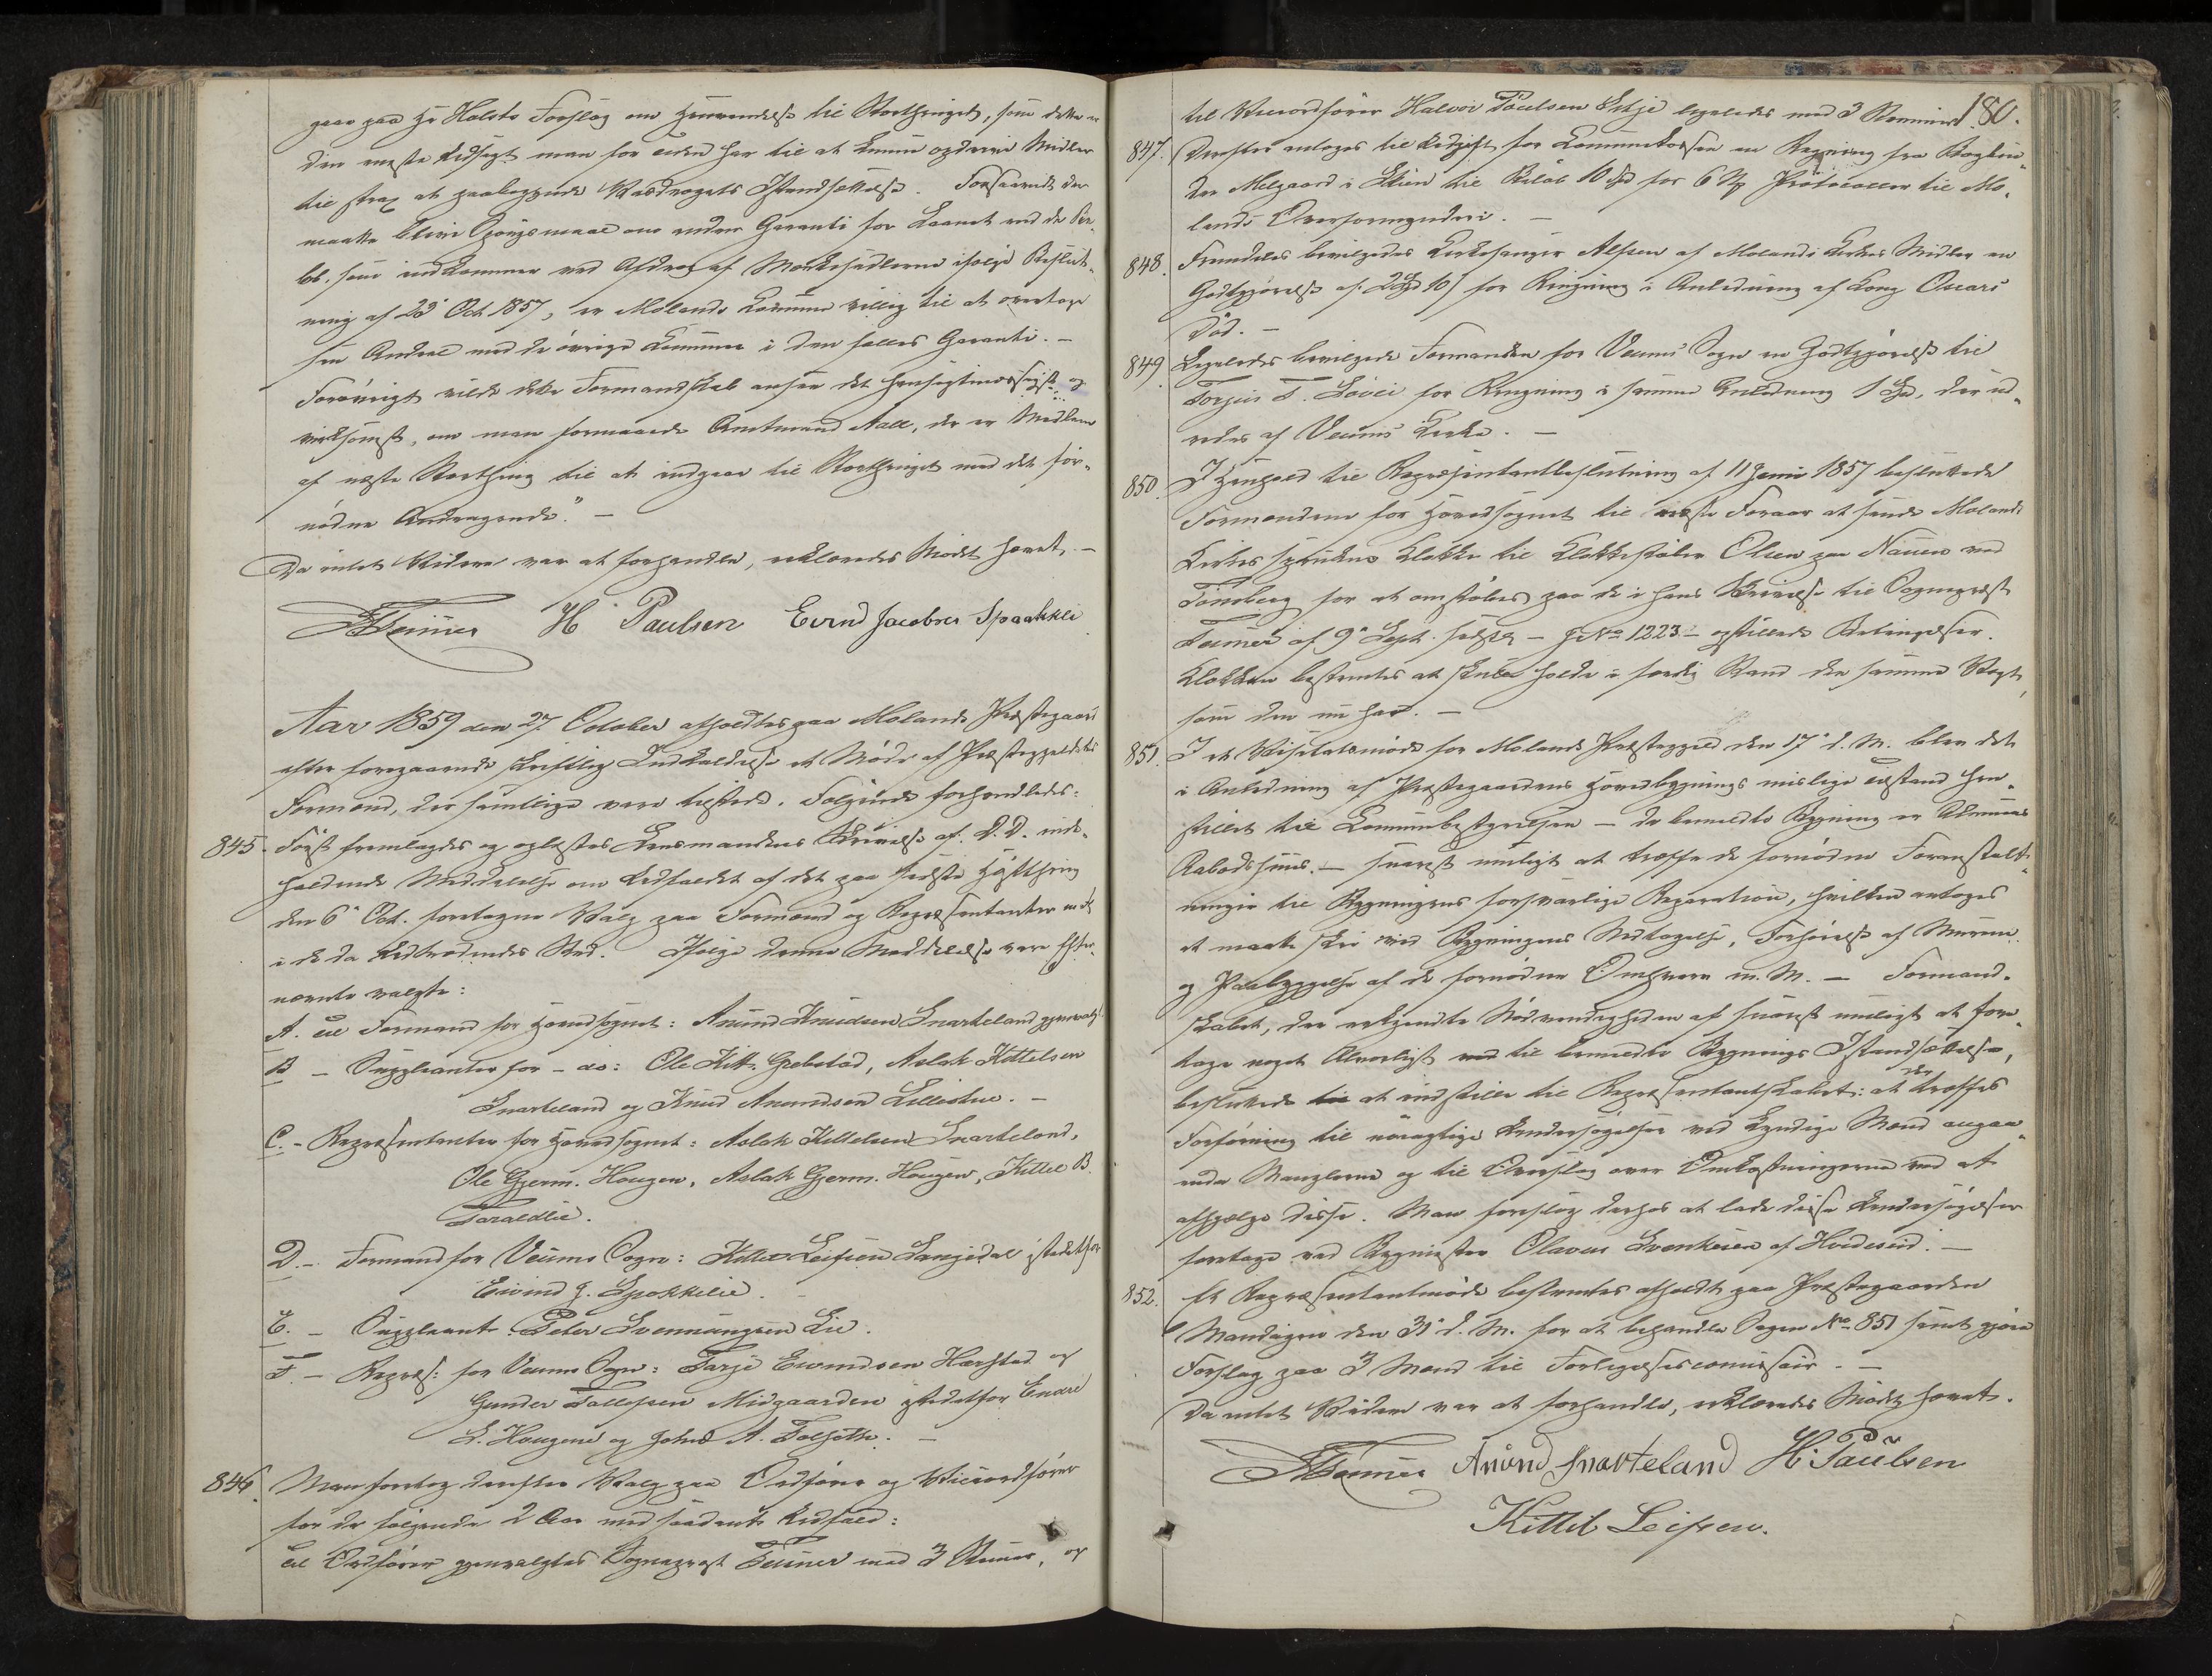 gaae paa Hr Holsts Forslag om Henvendelse til Storthinget, som dette er
den eneste Udsigt man for tiden har til at kunne opdrive Midler
til strax at paabegynde Vasdragets Istandsættelse. Forsaavidt der
maatte blive Spørgsmaal om anden Garanti for Laanet end de
bl. som indkommer ved Afdrag af Mærkesedlerne ifølge Beslut-
ning af 23' Oct 1857, er Molands Commune villig til at overtage
sin Andeel med de øvrige Communer i den fælles Garanti. —
Forøvrigt vilde dette Formandskab ansee det hensigtmæssigst og
virksomst, om man formaaede Amtmand Aall, der er Medlem
af næste Storthing til at indgaae til Storthinget med det for-
nødne Andragende." —
Da intet Videre var at forhandle, erklæredes Mødet hævet. —
Teimer H Paulsen Evind Jacobsen Spaakkli
Aar 1859 den 27. October afholdtes paa Molands Præstegaard
efter foregaaende skriftlig Indkaldelse et Møde af Præstegjeldets
Formænd, der samtlige vare tilstede. Følgende forhandledes:
845. Først fremlagdes og oplæstes Lensmandens Skrivelse af D. D. inde-
holdende Meddelelse om Udfaldet af det paa sidste Høstthing
den 6' Oct. foretagne Valg paa Formænd og Repræsentanter
i de da Udtrædendes Sted. Ifølge denne Meddelelse vare Efter-
nævnte valgte:
A. til Formand for Hovedsognet: Anund Knudsen Snarteland gjenvalgt
B — Suppleanter for — do: Ole Kitt. Grebstad, Aslak Kittelsen
Snarteland og Knud Anundsen Lillestue. —
C. — Repræsentanter for Hovedsognet: Aslak Kittelsen Snarteland,
Ole Gjerm. Hougen, Aslak Gjerm. Hougen, Kittel B.
Taraldlie.
D. — Formand for Veums Sogn: Kittel Leifsen Langedal istedetfor
Eivind J. Spokkelie. —
E. — Suppleant: Peter Svennungsen Lie.
F. — Repræs: for Veums Sogn: Tarje Evendsen Hærstad og
Gunder Tallefsen Midgaarden istedetfor Einar
L. Hougene og John A. Felsæth. —
846. Man foretog derefter Valg paa Ordfører og Viceordfører
for de følgende 2 Aar med saadant Udfald:
til Ordfører gjenvalgtes Sognepræst Teimer med 3 Stemmer, og
180.
til Viceordfører Halvor Poulsen Eskje ligeledes med 3 Stemmer.
847. Derefter antoges til Udgift for Communekassen en Regning fra Bogbin-
der Melgaard i Skien til Beløb 10 Spd for 6 St. Protocoller til Mo-
lands Overformynderi. —
848. Fremdeles bevilgedes Kirkesanger Alfsen af Molands Kirkes Midler en
Godtgjørelse af 2 Spd 10 s for Ringning i Anledning af Kong Oscars
Død. —
849. Ligeledes bevilgede Formanden for Veums Sogn en Godtgjørelse til
Torjus T. Lövei for Ringning i samme Anledning 1 Spd, der ud-
redes af Veums Kirke. —
850. I Henhold til Repræsentantbeslutning af 11 Juni 1857 besluttede
Formændene for Hovedsognet til næste Foraar at sende Molands
Kirkes sprukne Klokke til Klokkestøber Olsen paa Nauen ved
Tønsberg for at omstøbes paa de i hans Skrivelse til Sognepræst
Teimer af 9' Sept. sidstl. — J. No 1223 — opstillede Betingelser.
Klokken bestemtes at skulle holde i færdig Stand den samme Vægt,
som den nu har. —
851. I et Visitatsmøde for Molands Præstegjeld den 17' d. M. blev det
i Anledning af Præstegaardens Hovedbygnings mislige Tilstand hen-
stillet til Communebestyrelsen — da bemeldte Bygning er Almues
Aabodshuus. — snarest muligt at træffe de fornødne Foranstalt-
ninger til Bygningens forsvarlige Reparation, hvilken antoges
at maatte skee ved Bygningens Nedtagelse, Forhøielse af Murene
og Paabyggelse af de fornødne Omhvarv m. M. — Formand-
skabet, der erkjendte Nødvendigheden af snarest muligt at fore-
tage noget Alvorligt til bemeldte Bygnings Istandsættelse,
besluttede at indstille til Repræsentantskabet: at der træffes
Forføining til nøiagtige Undersøgelser ved kyndige Mænd angaa-
ende Manglerne og til Overslag over Omkostningerne ved at
afhjælpe disse. Man foreslog derhos at lade disse Undersøgelser
foretage ved Bygmester Olavus Svenkesen af Hvideseid. —
852. Et Repræsentantmøde bestemtes afholdt paa Præstegaarden
Mandagen den 31' d. M. for at behandle Sagen No 851 samt gjøre
Forslag paa 3 Mænd til Forligelsescommissair. —
Da intet Videre var at forhandle, erklæredes Mødet hævet.
Teimer Anund Snarteland H. Paulsen
Kittil Leifsen.